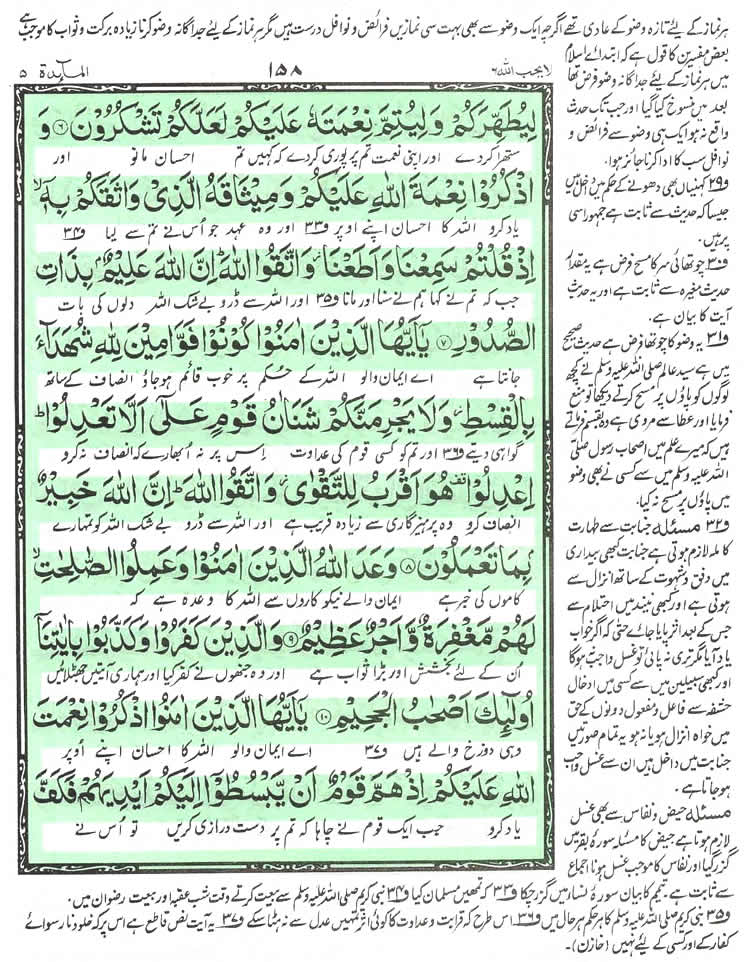 ہر نماز کے لئے تازہ وضو کے عادی تھے اگرچہ ایک وضو سے بھی بہت سی نمازیں فرائض و نوافل درست ہیں مگر ہر نماز کے لئے جداگانہ وضو کرنا زیادہ برکت و ثواب کا موجب ہے
بعض مفسرین کا قول ہے کہ ابتدائے اسلام
میں ہر نماز کے لئے جداگانہ وضو فرض تھا
بعد میں منسوخ کیا گیا اور جب تک حدث
واقع نہ ہو ایک ہی وضو سے فرائض و
نوافل سب کا ادا کرنا جائز ہوا.
و۲۹ کہنیاں بھی دھونے کے حکم میں داخل ہیں
جیسا کہ حدیث سے ثابت ہے جمہور اسی
پر ہیں.
و۳۰ چوتھائی سر کا مسح فرض ہے یہ مقدار
حدیث مغیرہ سے ثابت ہے اور یہ حدیث
آیت کا بیان ہے.
و۳۱ یہ وضو کا چوتھا فرض ہے حدیث صحیح
میں ہے سید عالم صلی اللہ علیہ وسلم نے کچھ
لوگوں کو پاؤں پر مسح کرتے دیکھا تو منع
فرمایا اور عطا سے مروی ہے وہ بقسم فرماتے
ہیں کہ میرے علم میں اصحاب رسول صلی
اللہ علیہ وسلم میں سے کسی نے بھی وضو
میں پاؤں پر مسح نہ کیا.
و۳۲ مسئلہ جنابت سے طہارت
کاملہ لازم ہوتی ہے جنابت کبھی بیداری
میں دفق و شہوت کے ساتھ انزال سے
ہوتی ہے اور کبھی نیند میں احتلام سے
جس کے بعد اثر پایا جائے حتی کہ اگر خواب
یاد آیا مگر تری نہ پائی تو غسل واجب نہ ہوگا
اور کبھی سبیلین میں سے کسی میں ادخال
حشفہ سے فاعل و مفعول دونوں کے حق
میں خواہ انزال ہو یا نہ ہو یہ تمام صورتیں
جنابت میں داخل ہیں ان سے غسل واجب
ہو جاتا ہے.
مسئلہ حیض و نفاس سے بھی غسل
لازم ہوتا ہے حیض کا مسئلہ سورۂ بقر میں
گزر گیا اور نفاس کا موجب غسل ہونا اجماع
لا یحب اللہ ۶ ۱۵۸ المآئدۃ ۵
لِیُطَهِّرَكُمْ وَ لِیُتِمَّ نِعْمَتَهٗ عَلَیْكُمْ لَعَلَّكُمْ تَشْكُرُوْنَ ۝۶ وَ
ستھرا کر دے اور اپنی نعمت تم پر پوری کر دے کہ کہیں تم احسان مانو اور
اذْكُرُوْا نِعْمَةَ اللّٰهِ عَلَیْكُمْ وَ مِیْثَاقَهُ الَّذِیْ وَاثَقَكُمْ بِهٖۤ ۙ
یاد کرو اللہ کا احسان اپنے اوپر و۳۳ اور وہ عہد جو اس نے تم سے لیا و۳۴
اِذْ قُلْتُمْ سَمِعْنَا وَ اَطَعْنَا ؗ وَ اتَّقُوا اللّٰهَ ؕ اِنَّ اللّٰهَ عَلِیْمٌۢ بِذَاتِ
جب کہ تم نے کہا ہم نے سنا اور مانا و۳۵ اور اللہ سے ڈرو بے شک اللہ دلوں کی بات
الصُّدُوْرِ ۝۷ یٰۤاَیُّهَا الَّذِیْنَ اٰمَنُوْا كُوْنُوْا قَوّٰمِیْنَ لِلّٰهِ شُهَدَآءَ
جانتا ہے اے ایمان والو اللہ کے حکم پر خوب قائم ہو جاؤ انصاف کے ساتھ
بِالْقِسْطِ ؗ وَ لَا یَجْرِمَنَّكُمْ شَنَاٰنُ قَوْمٍ عَلٰۤى اَلَّا تَعْدِلُوْا ؕ
گواہی دیتے و۳۶ اور تم کو کسی قوم کی عداوت اس پر نہ ابھارے کہ انصاف نہ کرو
اِعْدِلُوْا ۫ هُوَ اَقْرَبُ لِلتَّقْوٰى ؗ وَ اتَّقُوا اللّٰهَ ؕ اِنَّ اللّٰهَ خَبِیْرٌۢ
انصاف کرو وہ پرہیزگاری سے زیادہ قریب ہے اور اللہ سے ڈرو بے شک اللہ کو تمہارے
بِمَا تَعْمَلُوْنَ ۝۸ وَعَدَ اللّٰهُ الَّذِیْنَ اٰمَنُوْا وَ عَمِلُوا الصّٰلِحٰتِ ۙ
کاموں کی خبر ہے ایمان والے نیکوکاروں سے اللہ کا وعدہ ہے کہ
لَهُمْ مَّغْفِرَةٌ وَّ اَجْرٌ عَظِیْمٌ ۝۹ وَ الَّذِیْنَ كَفَرُوْا وَ كَذَّبُوْا بِاٰیٰتِنَاۤ
ان کے لئے بخشش اور بڑا ثواب ہے اور وہ جنھوں نے کفر کیا اور ہماری آیتیں جھٹلائیں
اُولٰٓىِٕكَ اَصْحٰبُ الْجَحِیْمِ ۝۱۰ یٰۤاَیُّهَا الَّذِیْنَ اٰمَنُوا اذْكُرُوْا نِعْمَتَ
وہی دوزخ والے ہیں و۳۷ اے ایمان والو اللہ کا احسان اپنے اوپر
اللّٰهِ عَلَیْكُمْ اِذْ هَمَّ قَوْمٌ اَنْ یَّبْسُطُوْۤا اِلَیْكُمْ اَیْدِیَهُمْ فَكَفَّ
یاد کرو جب ایک قوم نے چاہا کہ تم پر دست درازی کریں تو اس نے
سے ثابت ہے. تیمم کا بیان سورۂ نساء میں گزر چکا و۳۳ کہ تمھیں مسلمان کیا و۳۴ نبی کریم صلی اللہ علیہ وسلم سے بیعت کرتے وقت شب عقبہ اور بیعت رضوان میں.
و۳۵ نبی کریم صلی اللہ علیہ وسلم کا ہر حکم ہر حال میں و۳۶ اس طرح کہ قرابت و عداوت کا کوئی اثر تمہیں عدل سے نہ ہٹا سکے و۳۷ یہ آیت نص قاطع ہے اس پر کہ خلود نار سوائے
کفار کے اور کسی کے لئے نہیں (خازن).